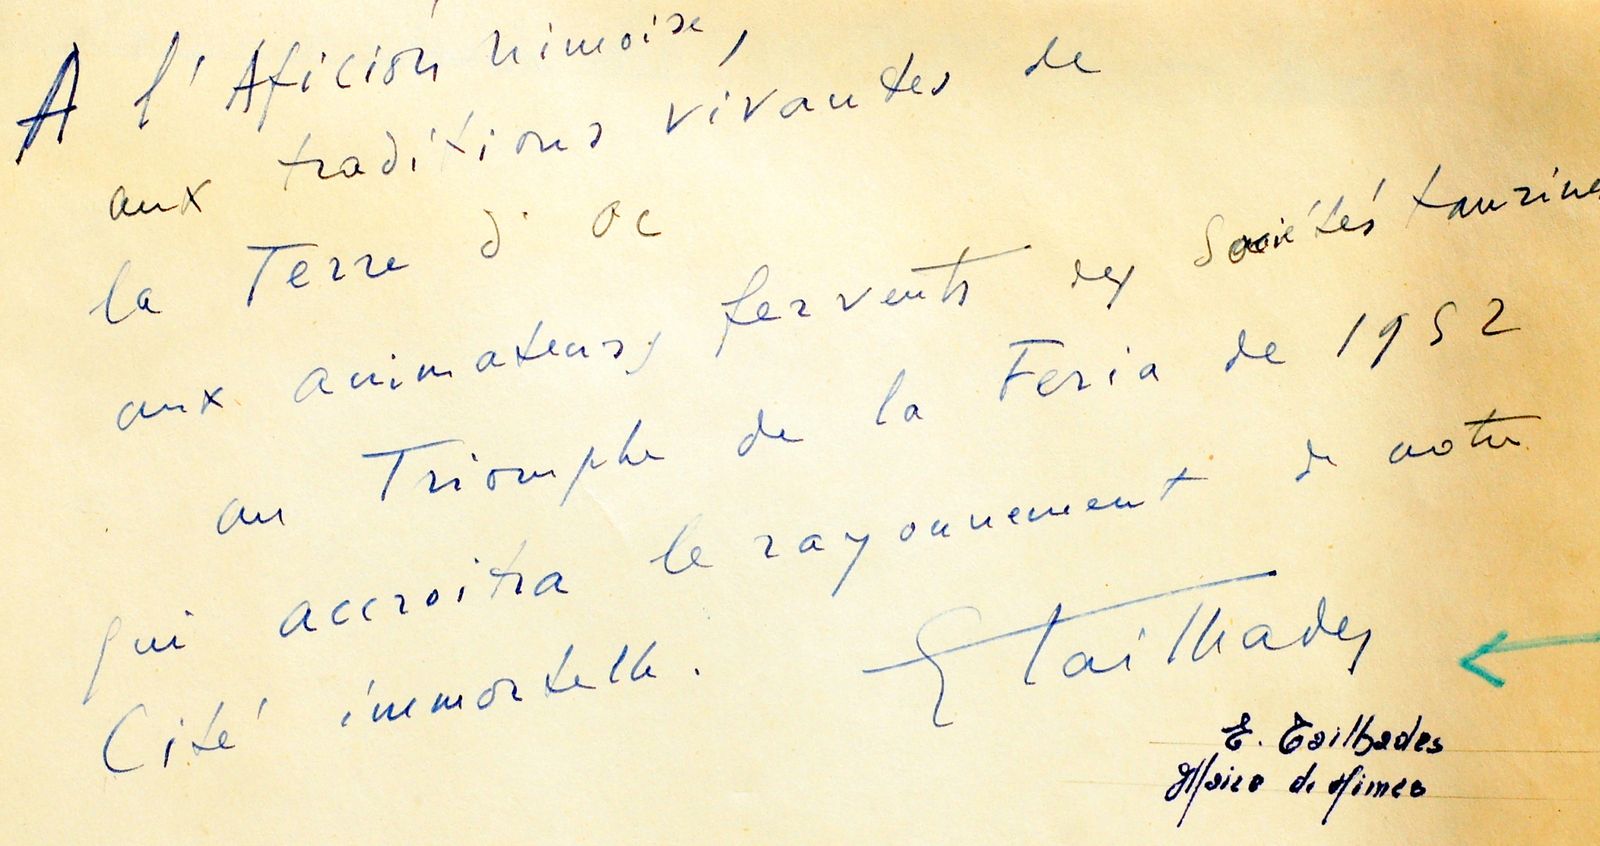 A l'Aficion nimoise,
aux traditions vivantes de
la Terre d'Oc
aux animateurs fervents des Sociétés taurines
au Triomphe de la Feria de 1952
qui accroitra le rayonnement de notre
Cité immortelle.
E Tailhades
E. Tailhades
Maire de Nimes